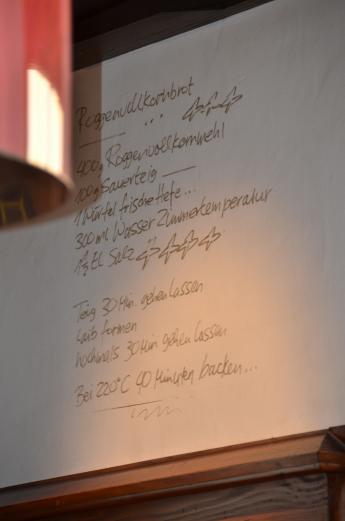 Roggenvollkornbrot
...
400g Roggenvollkornmehl
100g Sauerteig
1 Würfel frische Hefe...
300ml Wasser Zimmertemperatur
1½ EL Salz
Teig 30 Min. gehen lassen
Laib formen
nochmals 30 Min gehen lassen
Bei 220°C 40 Minuten backen...